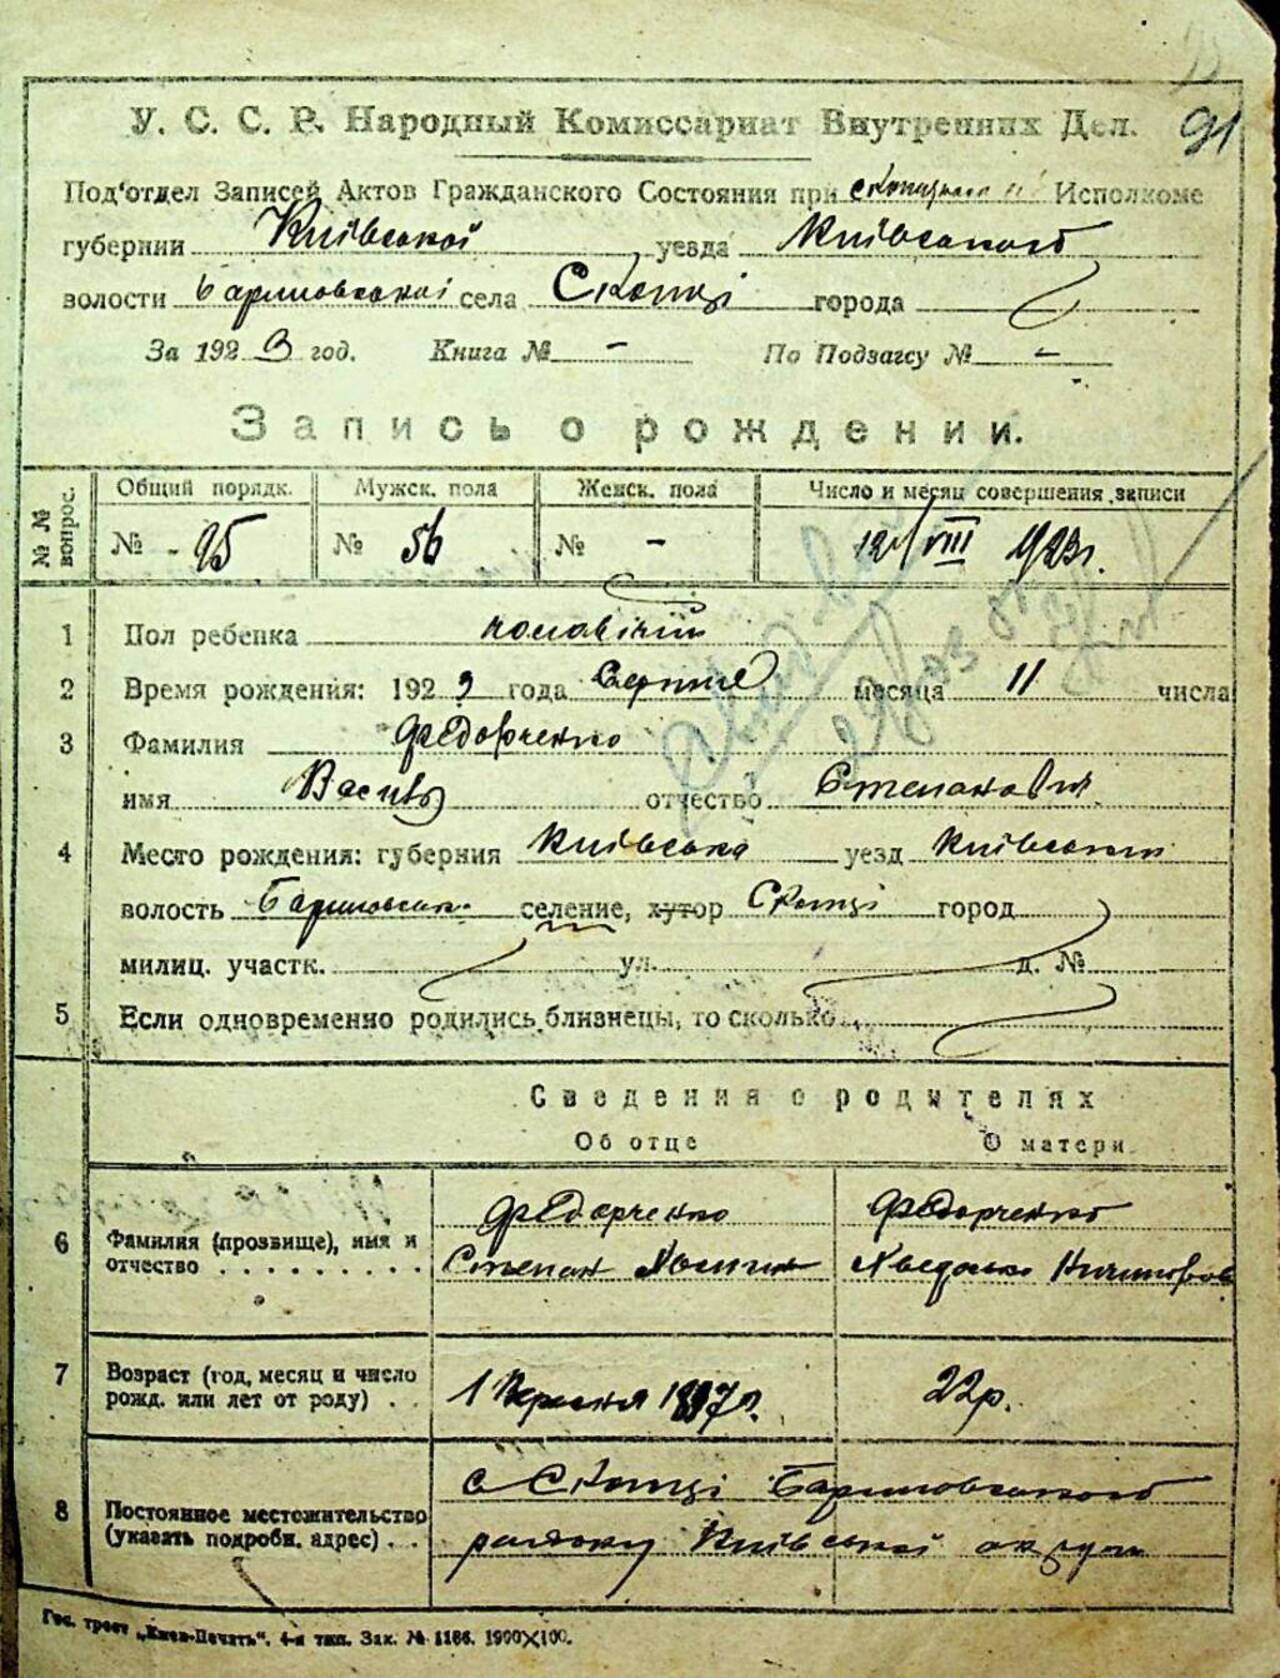 91
У. С. С. Р. Народный Комиссариат Внутренних Дел.
Под'отдел Записей Актов Гражданского Состояния при Исполкоме
губернии Київської уезда Київського
волости села Скопці города
За 1923 год. Книга № - По Подзагсу № -
Запись о рождении.
№ № вопрос. Общий порядк. Мужск. пола Женск. пола Число и месяц совершения записи
№ 95 № 56 № - 12/VIII 1923 г.
1 Пол ребенка чоловічий
2 Время рождения: 1923 года Серпня месяца 11 числа
3 Фамилия Федорченко
имя Василь отчество Степанович
4 Место рождения: губерния Київська уезд Київський
волость селение, хутор Скопці город
милиц. участк. ул. д. №
5 Если одновременно родились близнецы, то сколько
Сведения о родителях
Об отце О матери
6 Фамилия (прозвище), имя и отчество Федорченко Федорченко
Степан
7 Возраст (год, месяц и число рожд. или лет от роду) 1 Вересня 1897 р. 22 р.
8 Постоянное местожительство (указать подробн. адрес) с Скопці
району Київської округи
Гос. трест „Киев-Печать". 4-я тип. Зак. № 1186. 1900X100.